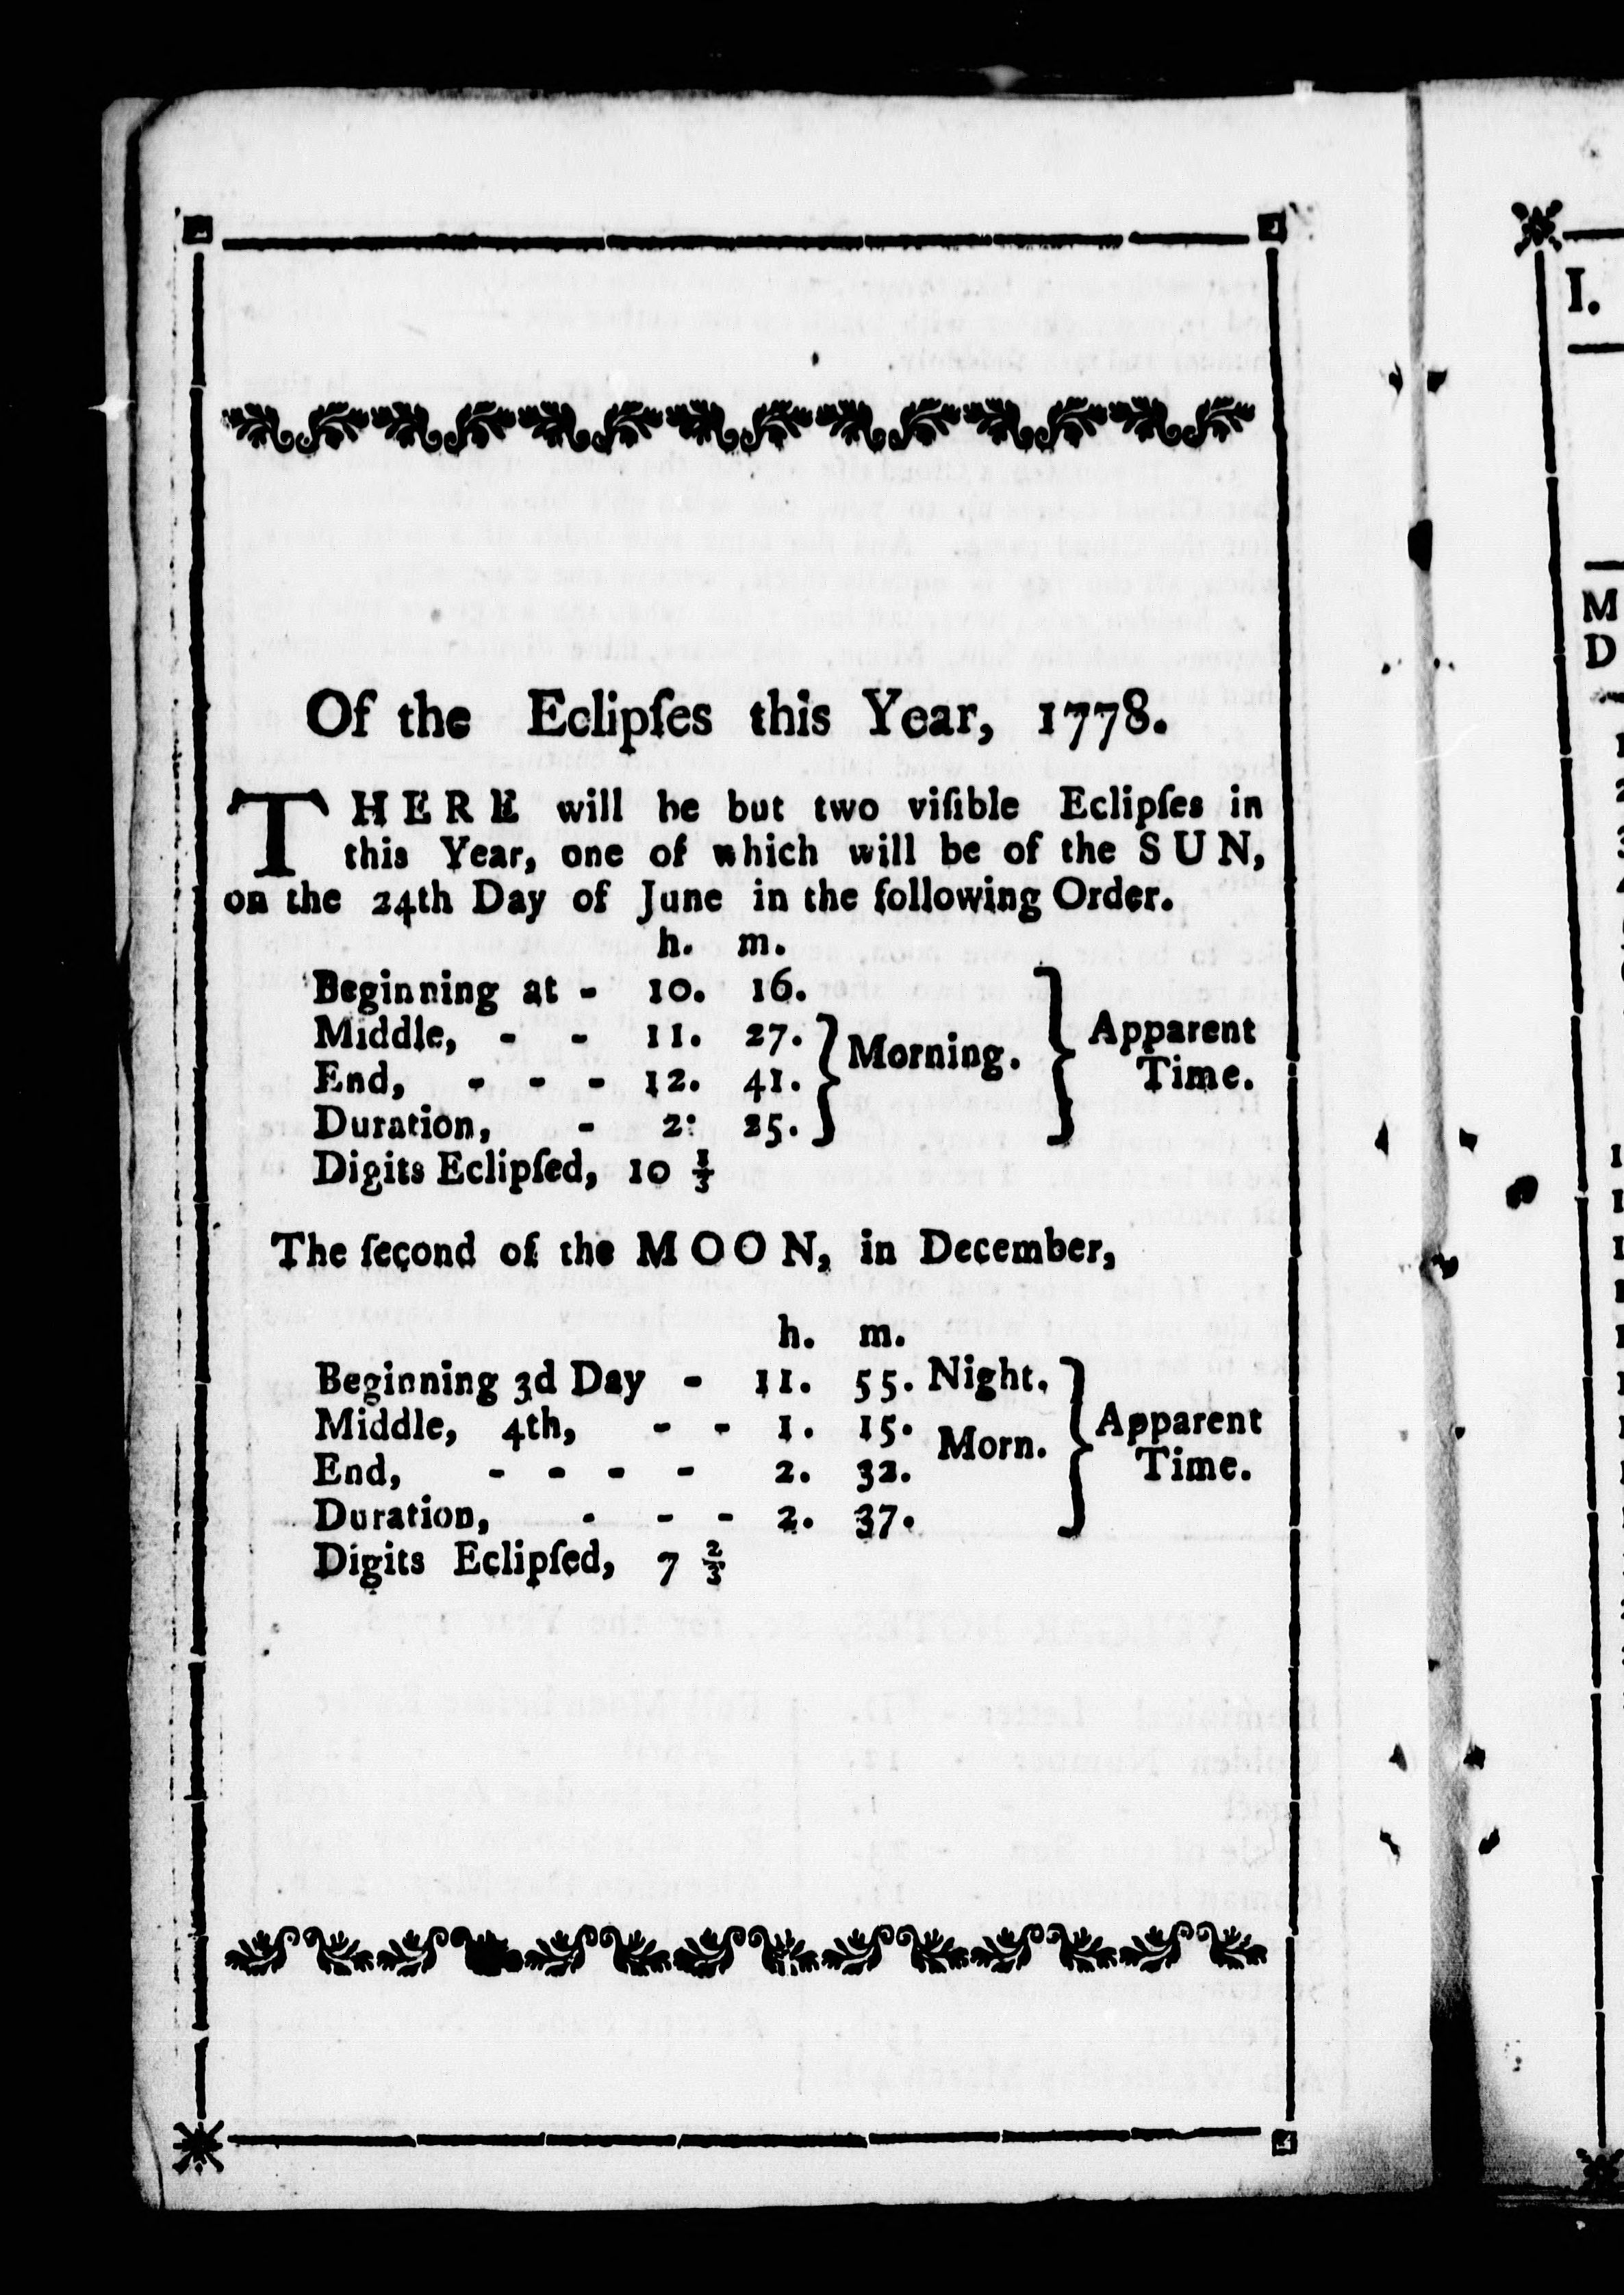 Of the Eclipſes this Year, 1778.
THERE will be but two viſible Eclipſes in
this Year, one of which will be of the SUN,
on the 24th Day of June in the following Order.
h. m.
Beginning at - 10. 16.
Middle, - - 11. 27.
End, - - - 12. 41.
Duration, - 2: 25.
Morning.
Apparent
Time.
Digits Eclipſed, 10 1/3
The ſecond of the MOON, in December,
h. m.
Beginning 3d Day - 11. 55. Night.
Middle, 4th, - - 1. 15.
Morn.
End, - - - - 2. 32.
Duration, - - - 2. 37.
Apparent
Time.
Digits Eclipſed, 7 2/3
I.
M
D